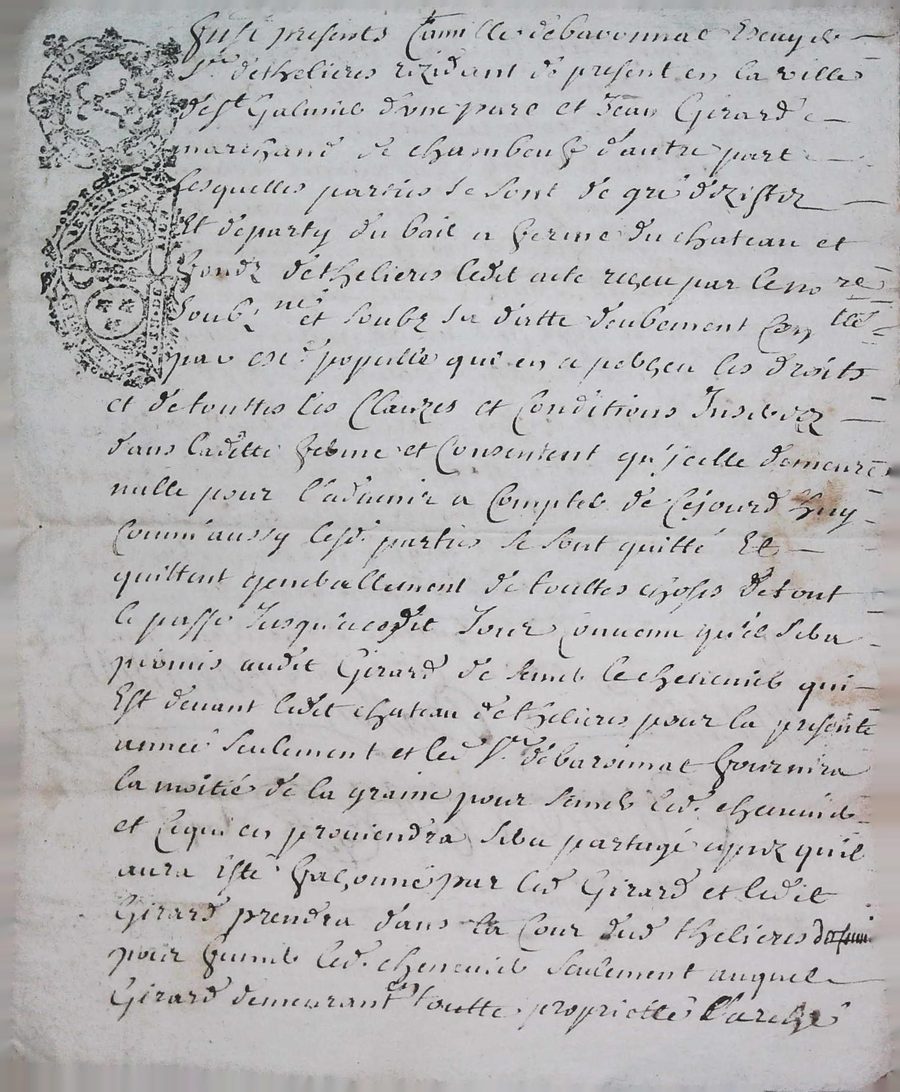 Fust presents Camille debaronnat Escuyer
Sr. dethelieres rezidant de present en la ville
de st Galmier d'une part et Jean Girard
marchand de chambeuf d'autre part
Lesquelles parties se sont de gré dezister
Et departy du bail a ferme du chateau et
fondz dethelieres ledit acte reçeu par le no re
Soubz né et soubz sa datte deubement
par qui en a les droits
et de touttes les Clauzes et Conditions Inserez
dans laditte ferme et Consentent qu'jcelle demeure
nulle pour l'aduenir a Compter de Cejourd huy
Comm'aussy lesd. parties se sont quitté Et
quittent generallement de touttes choses detout
le passé Jusqu'acedit Jour Conuenu qu'il sera
permis audit Girard de semer le cheneuier qui
Est deuant ledit chateau dethelieres pour la presente
année seulement et led Sr. debaronnat fournira
la moitié de la graine pour semer led. cheneuier
et Cequi en prouiendra sera partagé aprez qu'il
aura Esté façonné par led Girard et ledit
Girard prendra dans la Cour dud thelieres
pour fumer led. cheneuier seulement auquel
Girard demeurant toutte proprietté